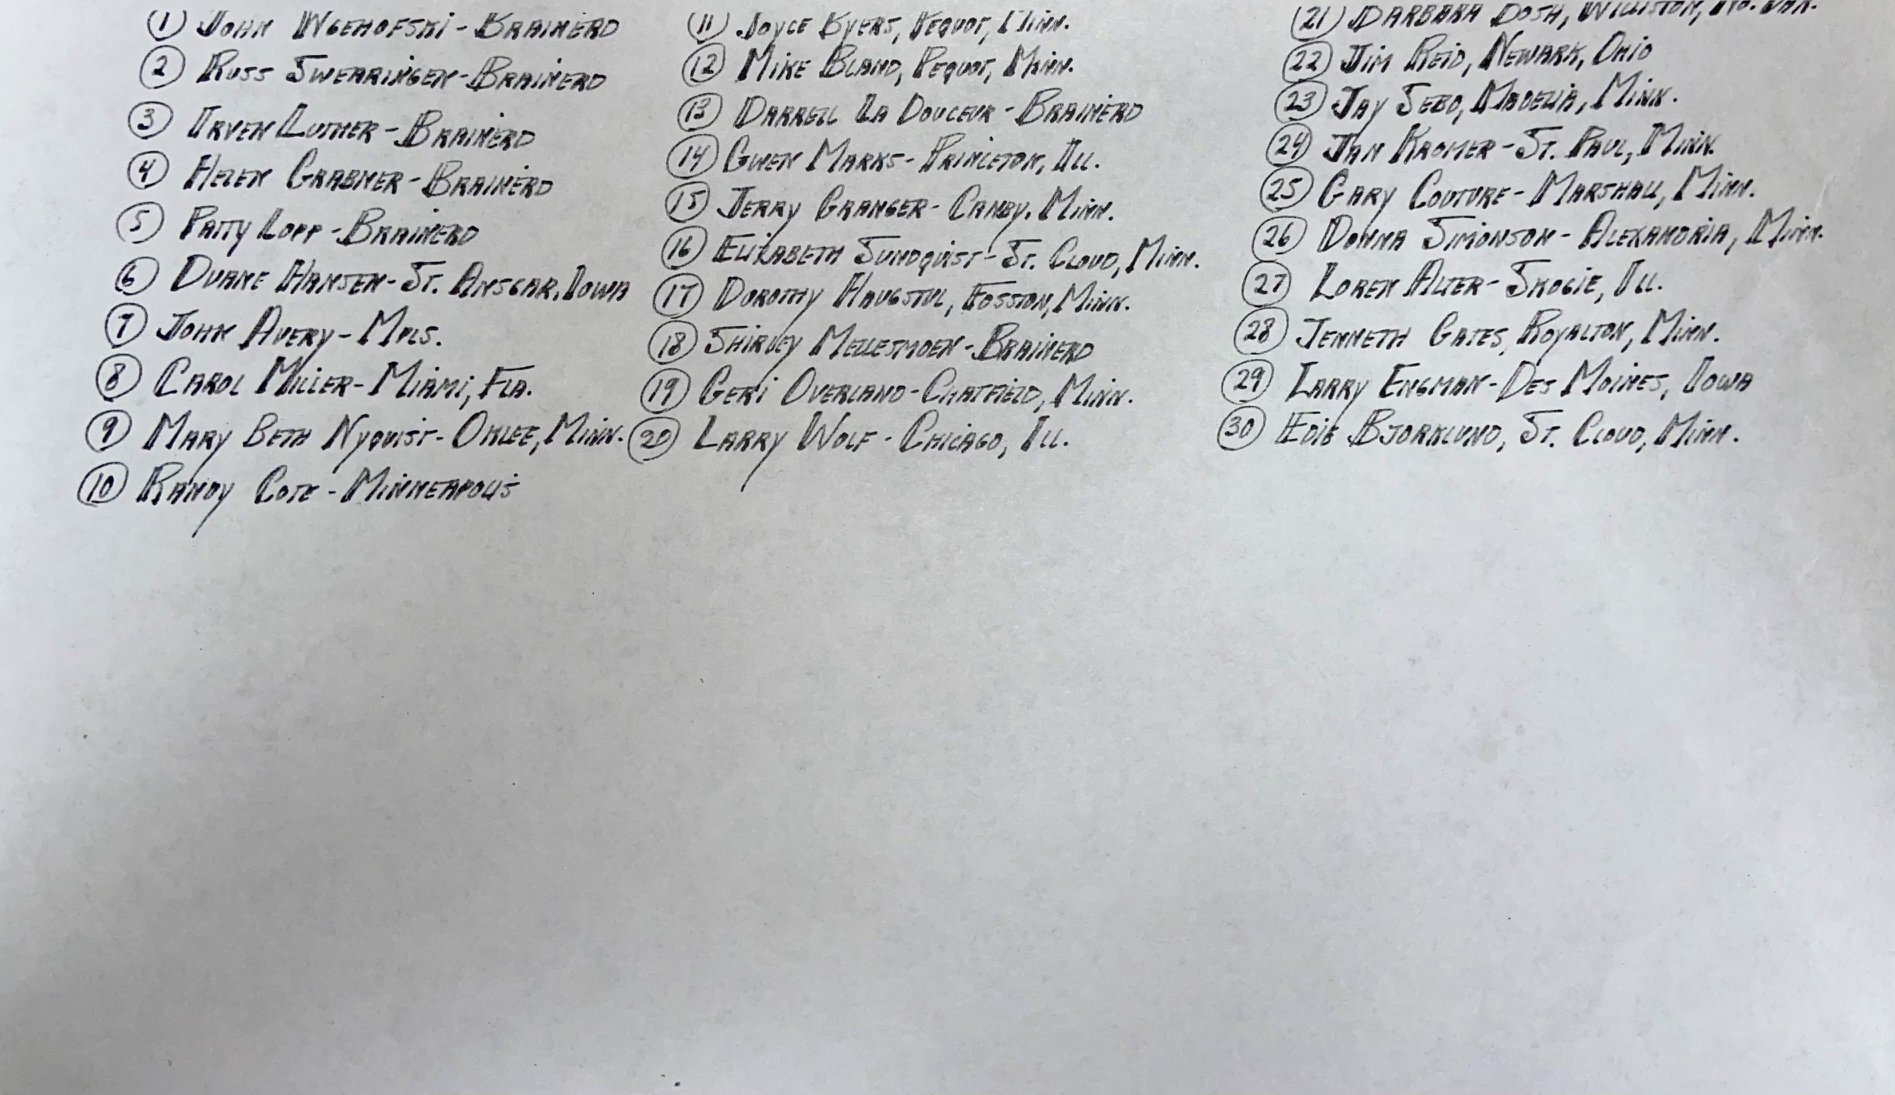 1 John Wgehofski - Brainerd
2 Russ Swearingen - Brainerd
3 Irven Luther - Brainerd
4 Helen Grabner - Brainerd
5 Patty Lopp - Brainerd
6 Duane Hansen - St. Ansgar, Iowa
7 John Avery - Mpls.
8 Carol Miller - Miami, Fla.
9 Mary Beth Nyquist - Oklee, Minn.
10 Randy Cote - Minneapolis
11 Joyce Byers, Pequot, Minn.
12 Mike Bland, Pequot, Minn.
13 Darrell La Douceur - Brainerd
14 Gwen Marks - Princeton, Ill.
15 Jerry Granger - Canby, Minn.
16 Elizabeth Sundquist - St. Cloud, Minn.
17 Dorothy Haugstul, Fosston, Minn.
18 Shirley Mellesmoen - Brainerd
19 Geri Overland - Chatfield, Minn.
20 Larry Wolf - Chicago, Ill.
21 Barbara Dosh, Williston, No. Dak.
22 Jim Reid, Newark, Ohio
23 Jay Sebo, Madelia, Minn.
24 Jan Kromer - St. Paul, Minn.
25 Gary Couture - Marshall, Minn.
26 Donna Simonson - Alexandria, Minn.
27 Loren Alter - Skogie, Ill.
28 Jenneth Gates, Royalton, Minn.
29 Larry Engman - Des Moines, Iowa
30 Edie Bjorklund, St. Cloud, Minn.